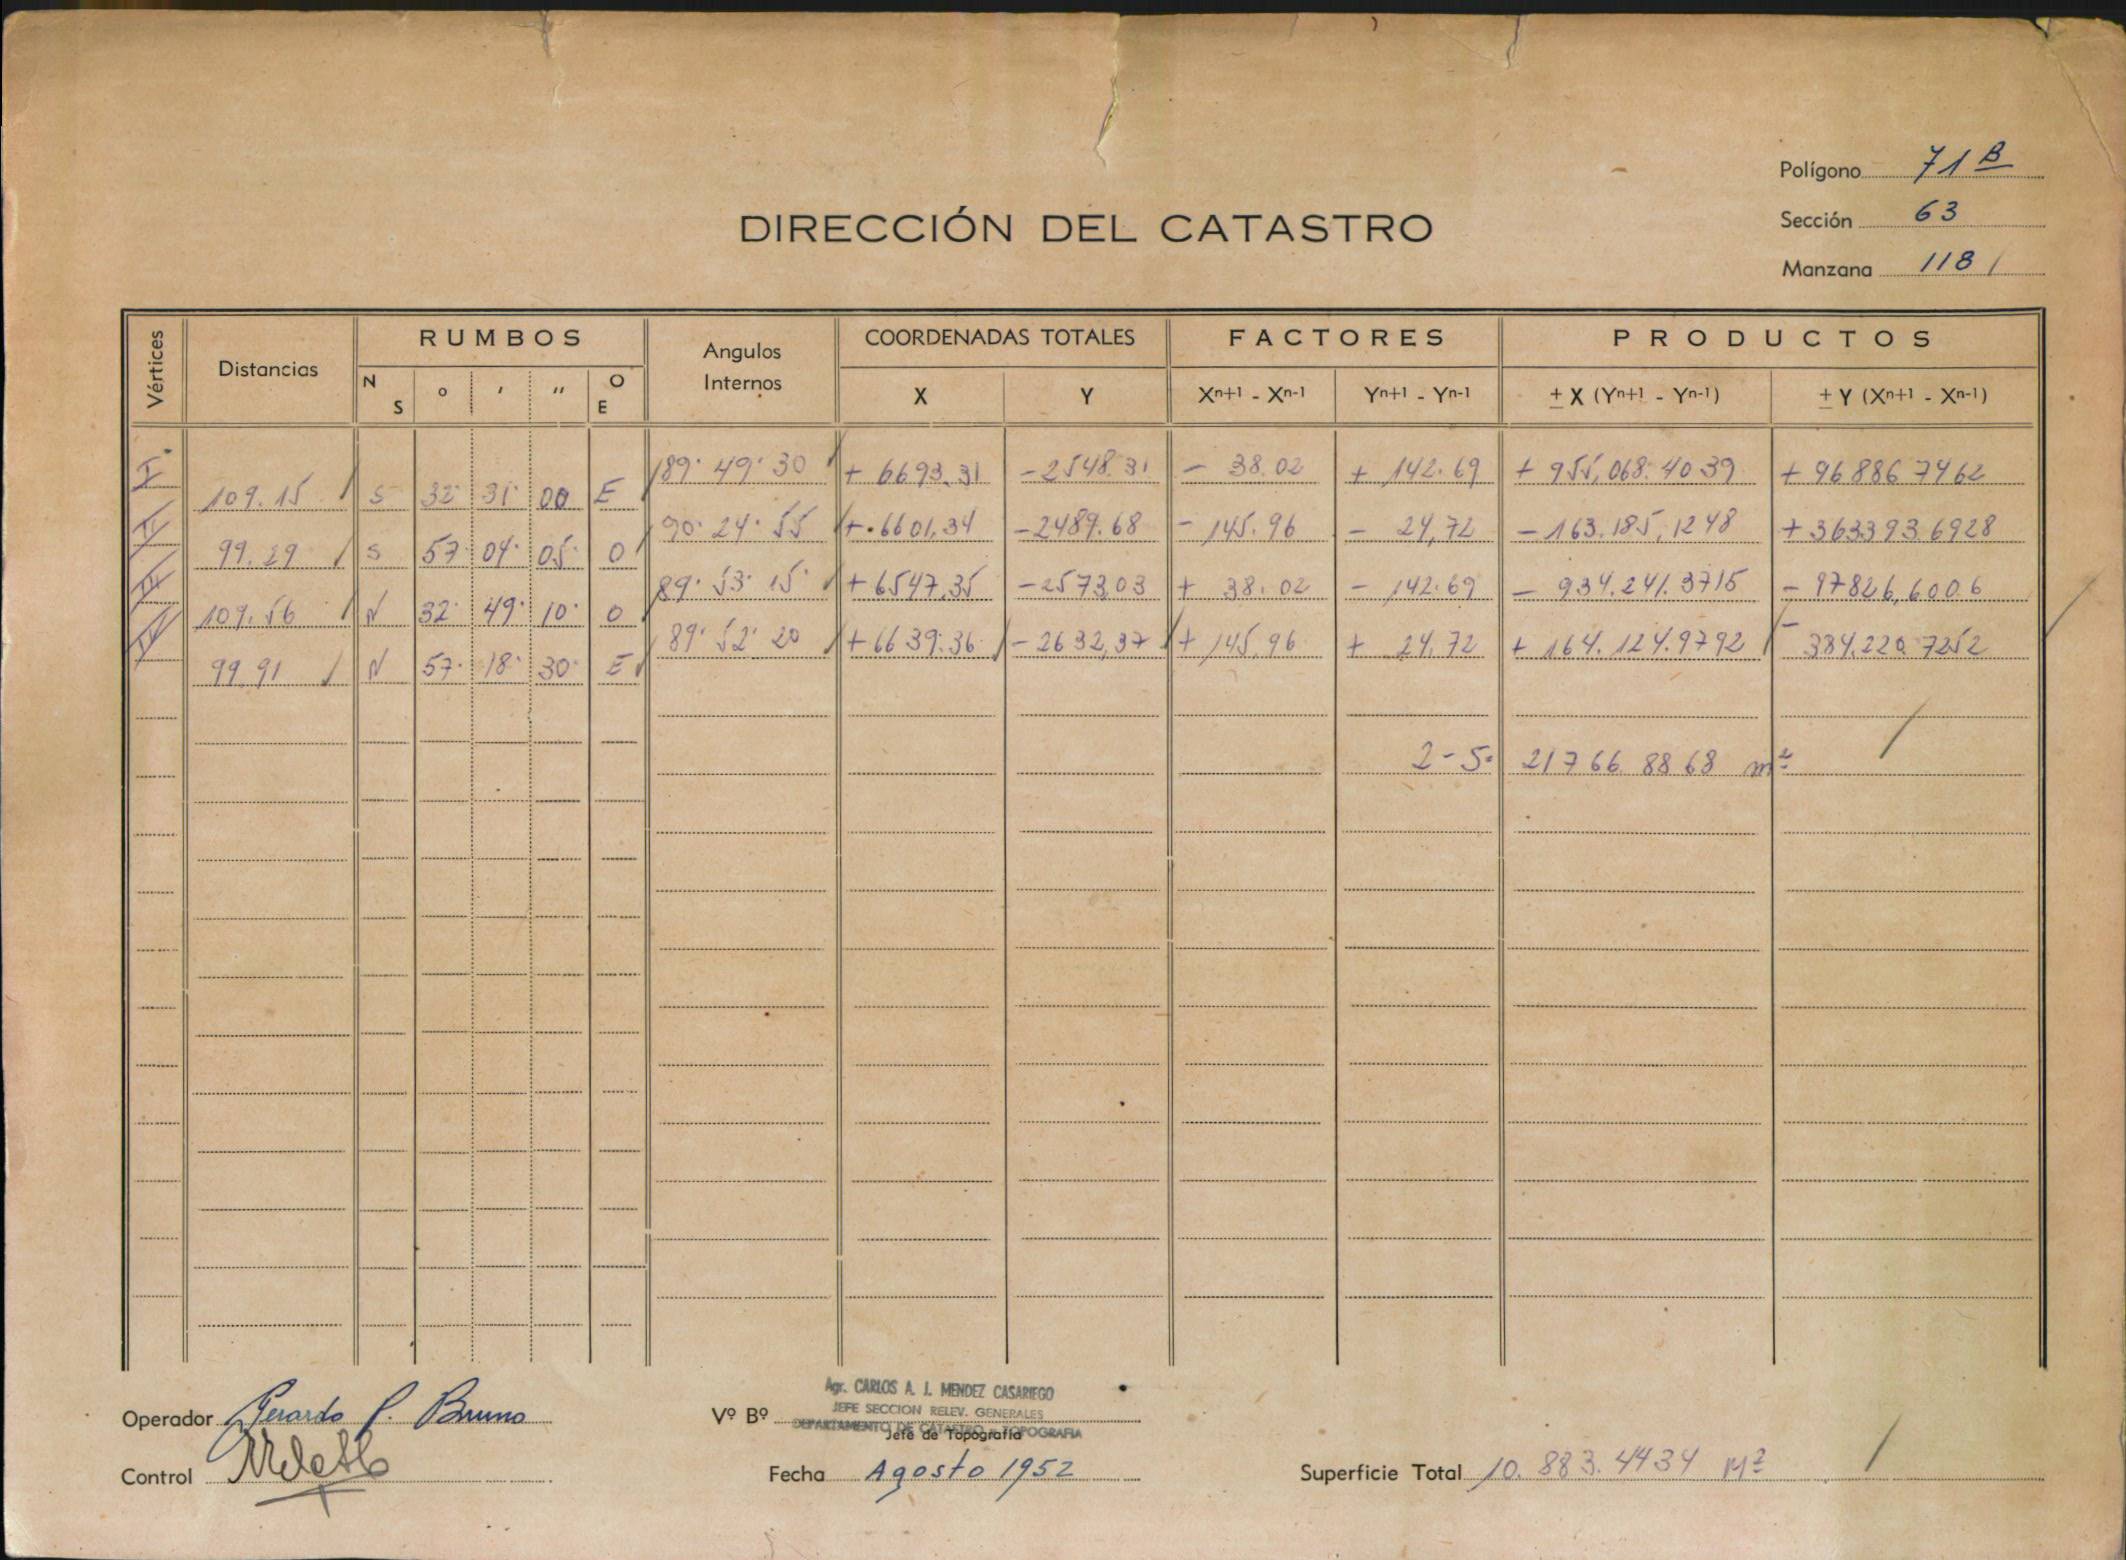 Polígono 71 B
Sección 63
Manzana 118
DIRECCIÓN DEL CATASTRO
Vértices Distancias RUMBOS Angulos Internos COORDENADAS TOTALES FACTORES PRODUCTOS
N S ° ' " O E X Y Xn+1 - Xn-1 Yn+1 - Yn-1 ± X (Yn+1 - Yn-1) ± Y (Xn+1 - Xn-1)
I 89° 49' 30 + 6693.31 -2548.31 - 38.02 + 142.69 + 955,068.4039 + 96886 7462
109.15 S 32° 31' 00 E
II 90° 24' 55 + 6601,34 -2489.68 - 145.96 - 24,72 - 163.185,1248 + 363393.6928
99.29 S 57° 04' 05 O
III 89° 53' 15 + 6547,35 -2573,03 + 38.02 - 142.69 - 934.241.3715 - 97826,6006
109.56 N 32° 49' 10 O
IV 89° 52' 20 + 6639.36 -2632,37 + 145,96 + 24,72 + 164.124.9792 - 384.220.7252
99.91 N 57° 18' 30 E
2-S= 21766.8868 m²
Operador Gerardo P. Bruno
Control
Vº Bº
Agr. CARLOS A. J. MENDEZ CASARIEGO
JEFE SECCION RELEV. GENERALES
DEPARTAMENTO DE CATASTRO y TOPOGRAFIA
Jefe de Topografía
Fecha Agosto 1952
Superficie Total 10.883.4434 M²